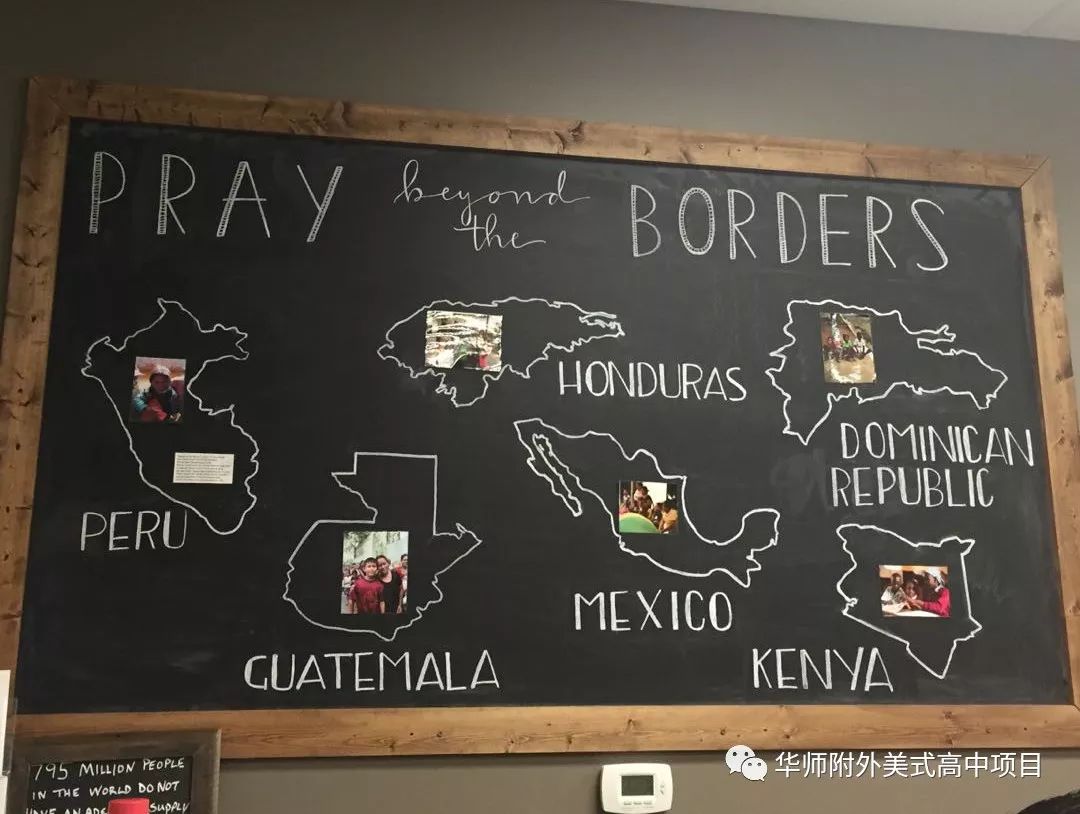 PRAY beyond the BORDERS
HONDURAS
DOMINICAN
REPUBLIC
PERU
MEXICO
GUATEMALA
KENYA
795 MILLION PEOPLE
IN THE WORLD DO NOT
HAVE AN SUPPLY
华师附外美式高中项目